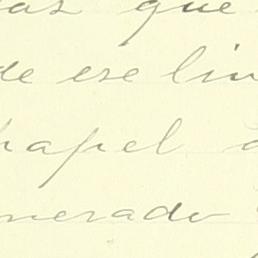 que
de ese lin
papel
nerado